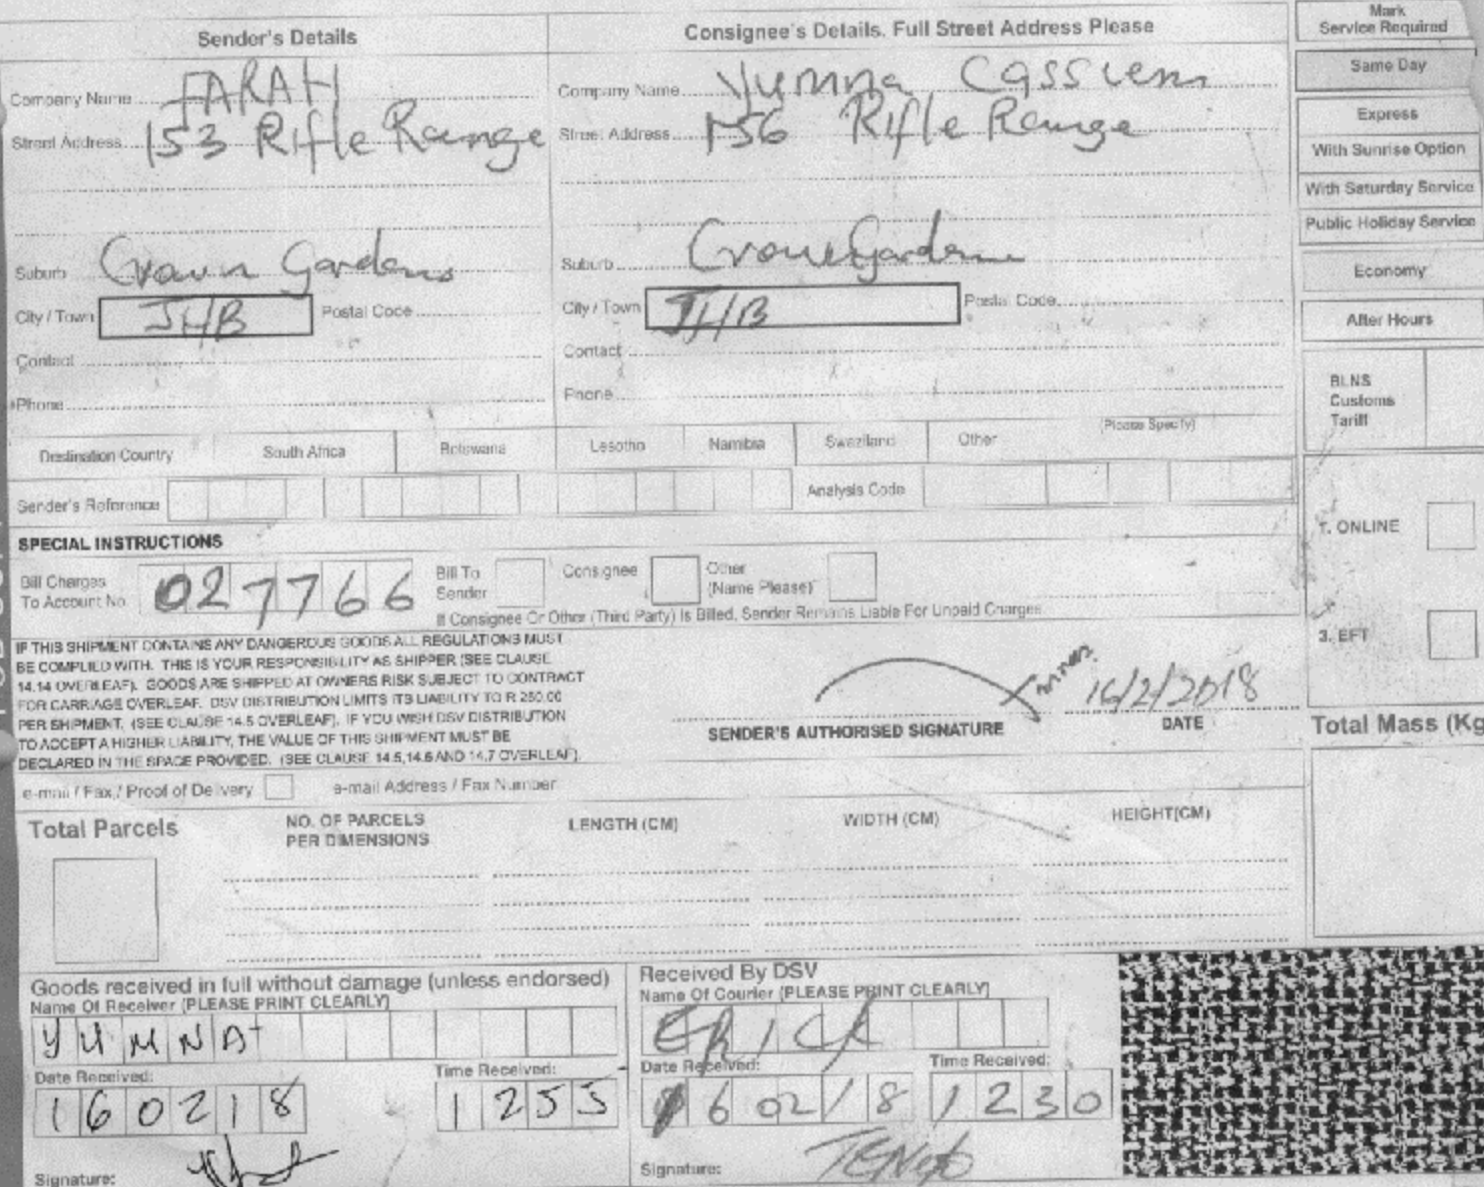 Sender's Details
Consignee's Details. Full Street Address Please
Mark
Service Required
Company Name FARAH
Company Name Yumna Cassiem
Same Day
Street Address 153 Rifle Range
Street Address 156 Rifle Range
Express
With Sunrise Option
With Saturday Service
Public Holiday Service
Suburb Crown Gardens
Suburb
Economy
City / Town JHB Postal Code
City / Town JHB Postal Code
After Hours
Contact
Contact
Phone
Phone
BLNS
Customs
Tariff
Destination Country South Africa Botswana Lesotho Namibia Swaziland Other (Please Specify)
Sender's Reference
Analysis Code
1. ONLINE
SPECIAL INSTRUCTIONS
Bill Charges
To Account No. 027766
Bill To
Sender
Consignee
Other
(Name Please)
If Consignee Or Other (Third Party) Is Billed, Sender Remains Liable For Unpaid Charges
3. EFT
IF THIS SHIPMENT CONTAINS ANY DANGEROUS GOODS ALL REGULATIONS MUST
BE COMPLIED WITH. THIS IS YOUR RESPONSIBILITY AS SHIPPER (SEE CLAUSE
14.14 OVERLEAF). GOODS ARE SHIPPED AT OWNERS RISK SUBJECT TO CONTRACT
FOR CARRIAGE OVERLEAF. DSV DISTRIBUTION LIMITS ITS LIABILITY TO R 250.00
PER SHIPMENT. (SEE CLAUSE 14.5 OVERLEAF). IF YOU WISH DSV DISTRIBUTION
TO ACCEPT A HIGHER LIABILITY, THE VALUE OF THIS SHIPMENT MUST BE
DECLARED IN THE SPACE PROVIDED. (SEE CLAUSE 14.5,14.6 AND 14.7 OVERLEAF).
16/2/2018
SENDER'S AUTHORISED SIGNATURE
DATE
Total Mass (Kg
e-mail / Fax / Proof of Delivery
e-mail Address / Fax Number
Total Parcels
NO. OF PARCELS
PER DIMENSIONS
LENGTH (CM)
WIDTH (CM)
HEIGHT(CM)
Goods received in full without damage (unless endorsed)
Name Of Receiver (PLEASE PRINT CLEARLY)
YUMNA
Date Received:
160218
Time Received:
1255
Signature:
Received By DSV
Name Of Courier (PLEASE PRINT CLEARLY)
ERICK
Date Received:
1602/8
Time Received:
1230
Signature: